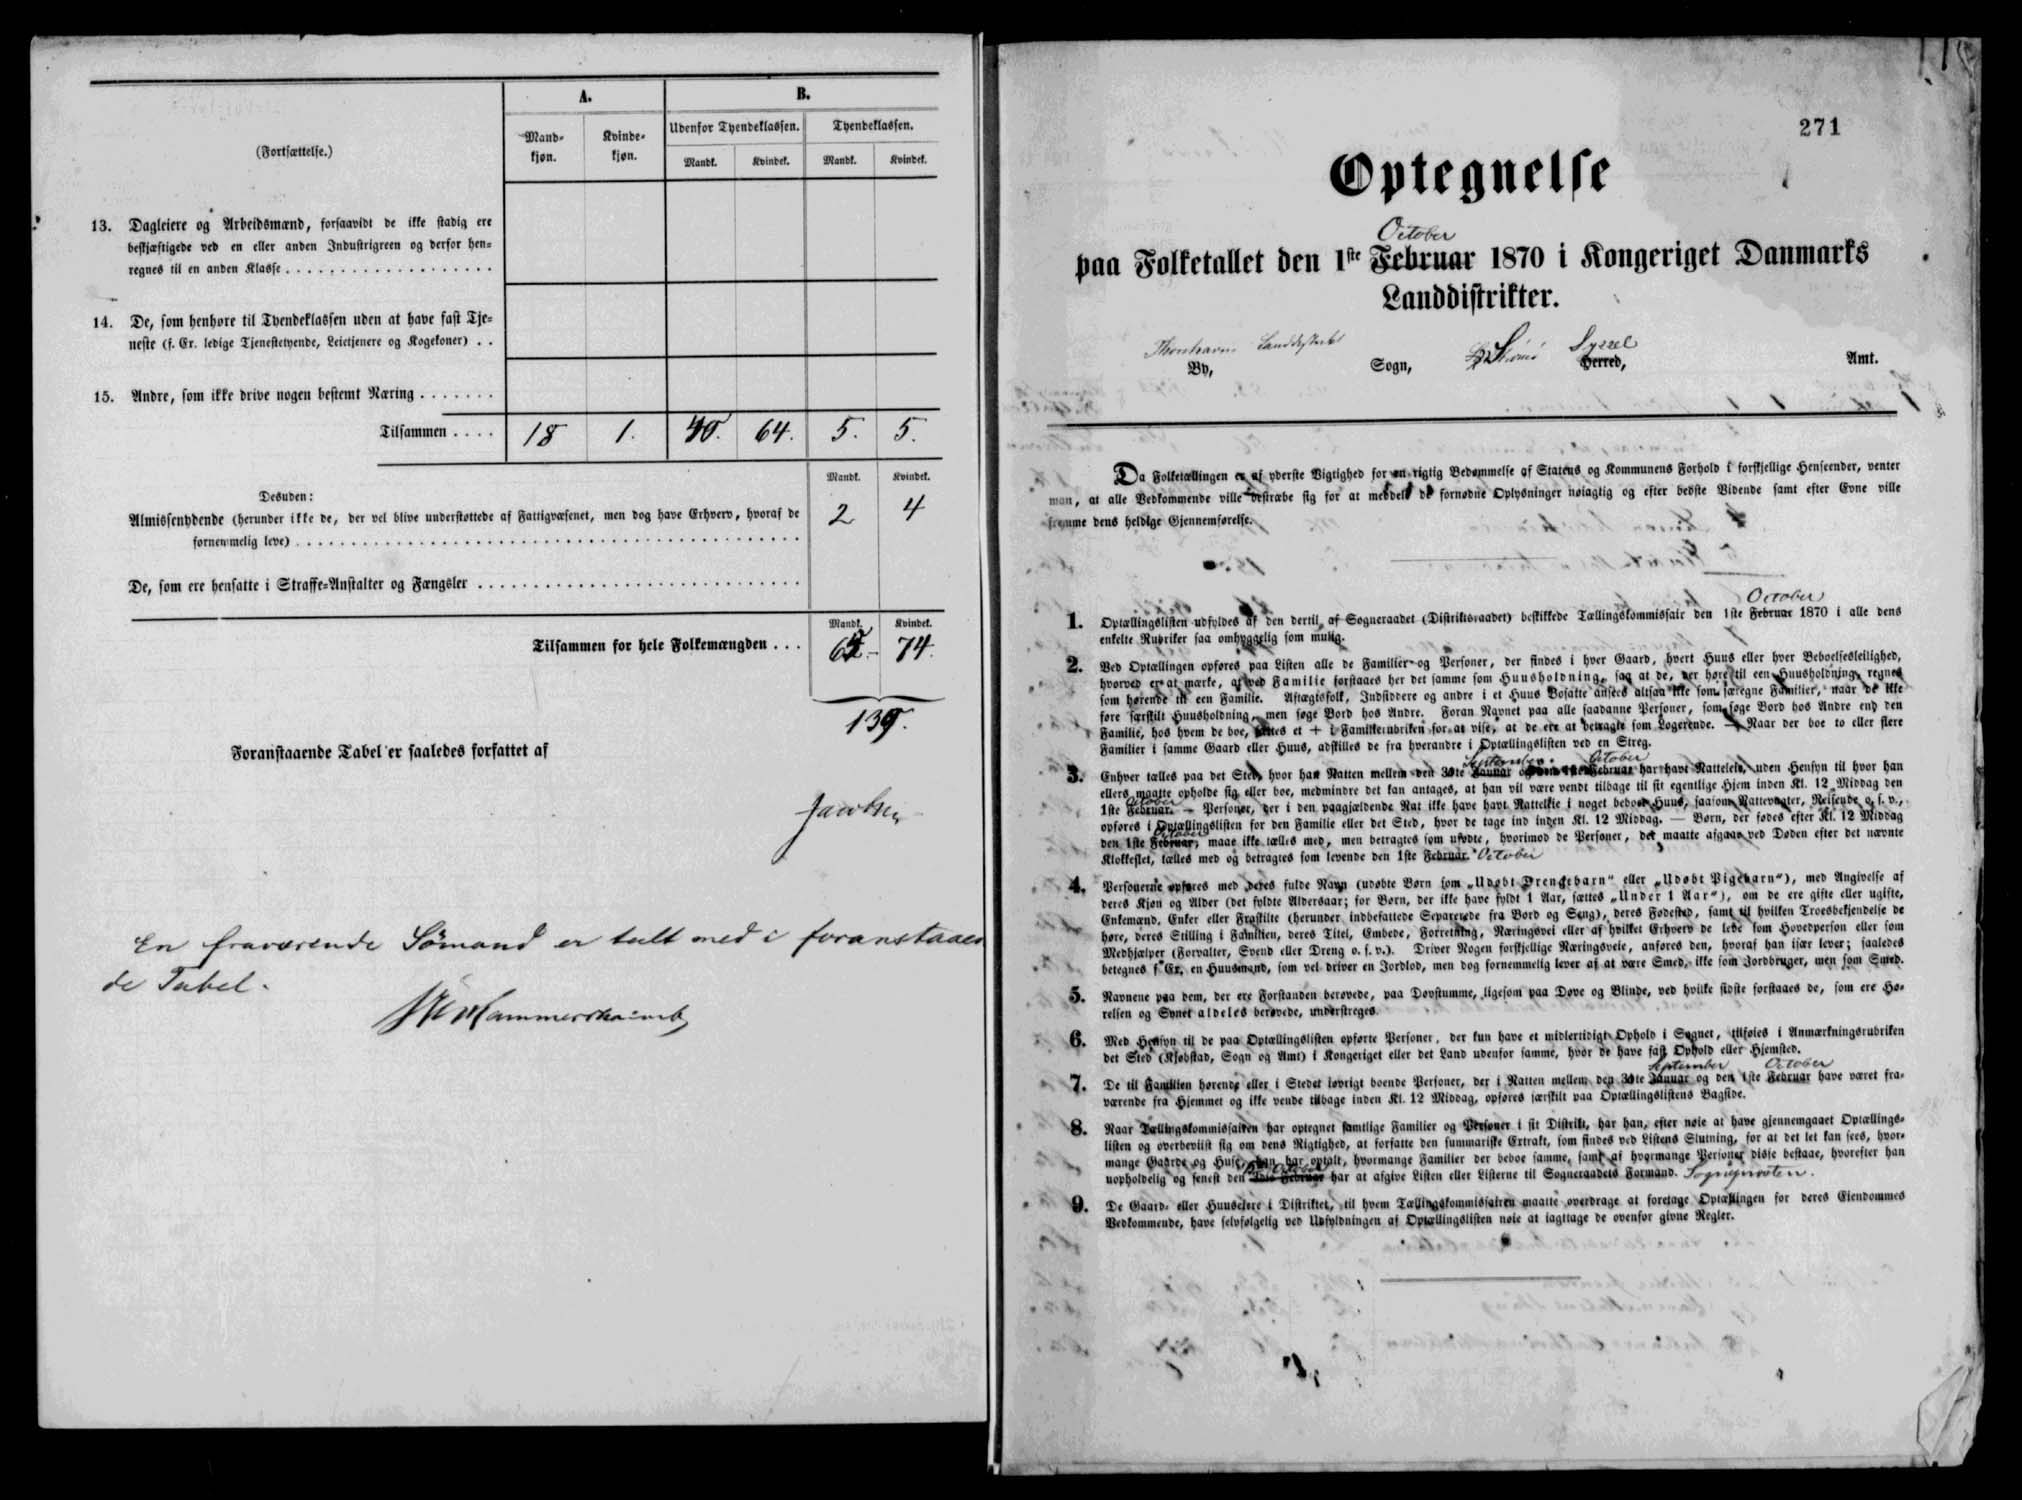 (Fortsættelse.)
A.
B.
Mand-
kjøn.
Kvinde-
kjøn.
Udenfor Tyendeklassen.
Tyendeklassen.
Mandk.
Kvindek.
Mandk.
Kvindek.
13. Dagleiere og Arbeidsmænd, forsaavidt de ikke stadig ere
beskjæftigede ved en eller anden Industrigreen og derfor hen-
regnes til en anden Klasse . . . . . . . . . . . . . . . . . . .
14. De, som henhøre til Tyendeklassen uden at have fast Tje-
neste (f. Ex. ledige Tjenestetyende, Leietjenere og Kogekoner) . .
15. Andre, som ikke drive nogen bestemt Næring . . . . . . .
Tilsammen . . . . 18 1. 40. 64. 5. 5.
Desuden:
Mandk. Kvindek.
Almissenydende (herunder ikke de, der vel blive understøttede af Fattigvæsenet, men dog have Erhverv, hvoraf de 2 4
fornemmelig leve) . . . . . . . . . . . . . . . . . . . .
De, som ere hensatte i Straffe-Anstalter og Fængsler . . . . . . . . . . . . . . . . . . . .
Mandk. Kvindek.
Tilsammen for hele Folkemængden . . . 65. 74.
139.
Foranstaaende Tabel er saaledes forfattet af
Jacobsen
En fraværende Sömand er talt med i foranstaaen
de Tabel.
Hammershaimb
271
Optegnelse
October
paa Folketallet den 1ste Februar 1870 i Kongeriget Danmarks
Landdistrikter.
Thorshavns Landdistrikt Syssel
By, Sogn, Herred, Amt.
Da Folketællingen er af yderste Vigtighed for en rigtig Bedømmelse af Statens og Kommunens Forhold i forskjellige Henseender, venter
man, at alle Vedkommende ville bestræbe sig for at meddele de fornødne Oplysninger nøiagtig og efter bedste Vidende samt efter Evne ville
fremme dens heldige Gjennemførelse.
October
1. Optællingslisten udfyldes af den dertil af Sogneraadet (Distriktsraadet) beskikkede Tællingskommissair den 1ste Februar 1870 i alle dens
enkelte Rubriker saa omhyggelig som mulig.
2. Ved Optællingen opføres paa Listen alle de Familier og Personer, der findes i hver Gaard, hvert Huus eller hver Beboelsesleilighed,
hvorved er at mærke, at ved Familie forstaaes her det samme som Huusholdning, saa at de, der høre til een Huusholdning, regnes
som hørende til een Familie. Aftægtsfolk, Indsiddere og andre i et Huus Bosatte ansees altsaa ikke som særegne Familier, naar de ikke
føre særskilt Huusholdning, men søge Bord hos Andre. Foran Navnet paa alle saadanne Personer, som søge Bord hos Andre end den
Familie, hos hvem de boe, sættes et + i Familierubriken for at vise, at de ere at betragte som Logerende. — Naar der boe to eller flere
Familier i samme Gaard eller Huus, adskilles de fra hverandre i Optællingslisten ved en Streg.
September. October
3. Enhver tælles paa det Sted, hvor han Natten mellem den 30te Januar og den 1ste Februar har havt Natteleie, uden Hensyn til hvor han
ellers maatte opholde sig eller boe, medmindre det kan antages, at han vil være vendt tilbage til sit egentlige Hjem inden Kl. 12 Middag den
October
1ste Februar. — Personer, der i den paagjældende Nat ikke have havt Natteleie i noget beboet Huus, saasom Nattevægter, Reisende o. s. v.,
opføres i Optællingslisten for den Familie eller det Sted, hvor de tage ind inden Kl. 12 Middag. — Børn, der fødes efter Kl. 12 Middag
October
den 1ste Februar, maae ikke tælles med, men betragtes som ufødte, hvorimod de Personer, der maatte afgaae ved Døden efter det nævnte
Klokkeslet, tælles med og betragtes som levende den 1ste Februar. October
4. Personerne opføres med deres fulde Navn (udøbte Børn som „Udøbt Drengebarn“ eller „Udøbt Pigebarn“), med Angivelse af
deres Kjøn og Alder (det fyldte Aldersaar; for Børn, der ikke have fyldt 1 Aar, sættes „Under 1 Aar“), om de ere gifte eller ugifte,
Enkemænd, Enker eller Fraskilte (herunder indbefattede Separerede fra Bord og Seng), deres Fødested, samt til hvilken Troesbekjendelse de
høre, deres Stilling i Familien, deres Titel, Embede, Forretning, Næringsvei eller af hvilket Erhverv de leve som Hovedperson eller som
Medhjælper (Forvalter, Svend eller Dreng o. s. v.). Driver Nogen forskjellige Næringsveie, anføres den, hvoraf han især lever; saaledes
betegnes f. Ex. en Huusmand, som vel driver en Jordlod, men dog fornemmelig lever af at være Smed, ikke som Jordbruger, men som Smed.
5. Navnene paa dem, der ere Forstanden berøvede, paa Døvstumme, ligesom paa Døve og Blinde, ved hvilke sidste forstaaes de, som ere Hø-
relsen og Synet aldeles berøvede, understreges.
6. Med Hensyn til de paa Optællingslisten opførte Personer, der kun have et midlertidigt Ophold i Sognet, tilføies i Anmærkningsrubriken
det Sted (Kjøbstad, Sogn og Amt) i Kongeriget eller det Land udenfor samme, hvor de have fast Ophold eller Hjemsted.
September October
7. De til Familien hørende eller i Stedet iøvrigt boende Personer, der i Natten mellem den 30te Januar og den 1ste Februar have været fra-
værende fra Hjemmet og ikke vende tilbage inden Kl. 12 Middag, opføres særskilt paa Optællingslistens Bagside.
8. Naar Tællingskommissairen har optegnet samtlige Familier og Personer i sit Distrikt, har han, efter nøie at have gjennemgaaet Optællings-
listen og overbeviist sig om dens Rigtighed, at forfatte den summariske Extrakt, som findes ved Listens Slutning, for at det let kan sees, hvor-
mange Gaarde og Huse han har optalt, hvormange Familier der beboe samme, samt af hvormange Personer disse bestaae, hvorefter han
October
uopholdelig og senest den Februar har at afgive Listen eller Listerne til Sogneraadets Formand. Sognepræsten.
9. De Gaard- eller Huuseiere i Distriktet, til hvem Tællingskommissairen maatte overdrage at foretage Optællingen for deres Eiendommes
Vedkommende, have selvfølgelig ved Udfyldningen af Optællingslisten nøie at iagttage de ovenfor givne Regler.